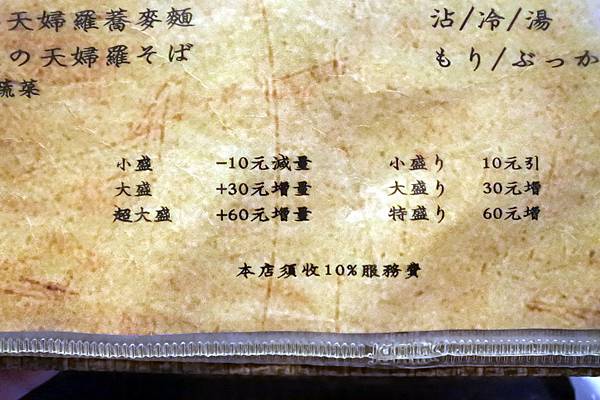 天婦羅蕎麥麵 沾/冷/湯
の天婦羅そば もり/ぶっか
蔬菜
小盛 -10元減量 小盛り 10元引
大盛 +30元增量 大盛り 30元增
超大盛 +60元增量 特盛り 60元增
本店須收10%服務費